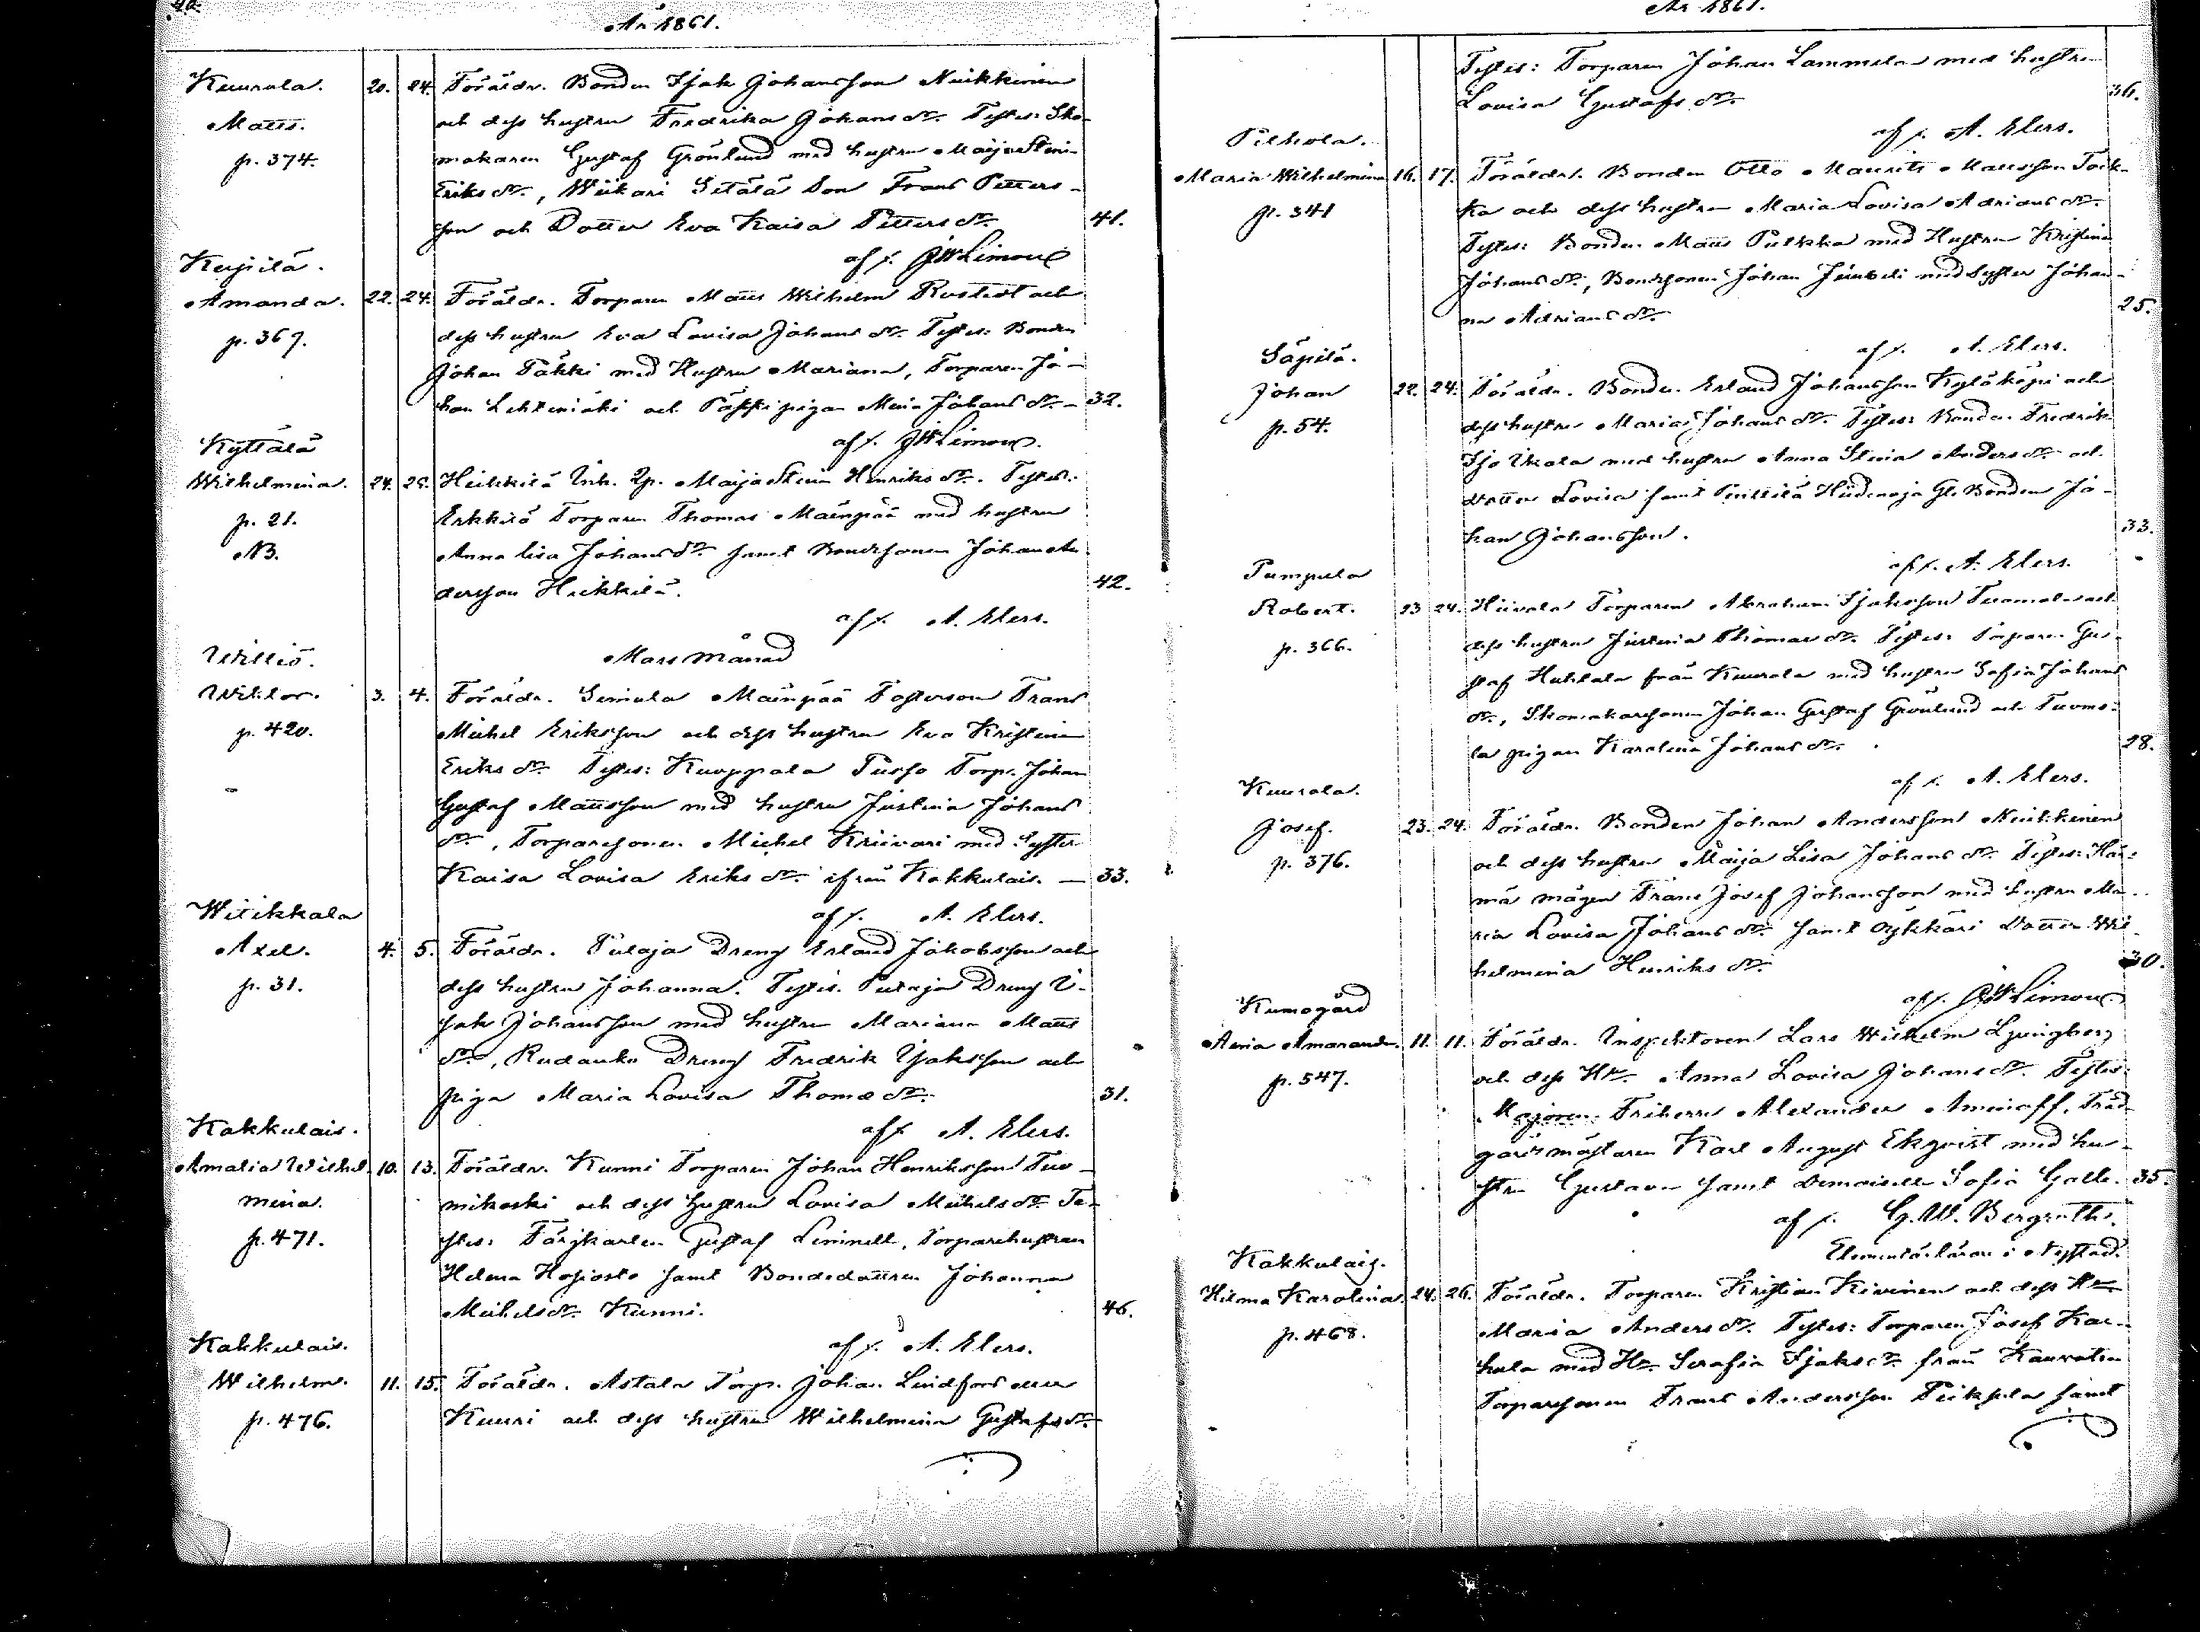 40.
År 1861.
Kuurola. 20. 24. Föräldr. Bonden Isak Johansson Nuikkinen
Matts. och dess hustru Fredrika Johans dr. Testes: Sko-
p. 374. makaren Gustaf Grönlund med hustru Maija Stin
Eriks dr., Wiikari Setälä Son Frans Petters-
son och Dotter Eva Kaisa Petters dr. 41.
af
Kujitä.
Amanda. 22. 24. Föräldr. Torparen Matts Wilhelm Rostedt och
p. 367. dess hustru Eva Lovisa Johans dr. Testes: Bonden
Johan Päkki med Hustru Mariana, Torparen Jo-
han Lehtimäki och pigan Maria Johans dr. 32.
af
Kyttälä
Wilhelmina. 24. 25. Heikkilä Inh. Qp. Maija Stina Henriks dr. Testes:
p. 21. Erkkilä Torparen Thomas Mäinpää med hustru
NB. Anna Lisa Johans dr samt Bondsonen Johan An
dersson Heikkilä. 42.
af A. Elers.
Mars månad
Willio.
Wiktor. 3. 4. Föräldr. Mäinpää Fosterson Frans
p. 420. Michel Eriksson och dess hustru Eva Kristina
Eriks dr. Testes: Kuoppala Torp. Johan
Gustaf Mattsson med hustru Justina Johans
dr., Torparesonen Michel Kriivari med Syster
Kaisa Lovisa Eriks dr. ifrån Kakkulais. 33.
af A. Elers.
Witikkala
Axel. 4. 5. Föräldr. Dreng Erland Jakobsson och
p. 31. dess hustru Johanna. Testes: Dreng I-
sak Johansson med hustru Mariana Matts
dr., Rudanko Dreng Fredrik Isaksson och
piga Maria Lovisa Thomæ dr. 31.
af A. Elers.
Kakkulais.
Amalia Wilhel- 10. 13. Föräldr. Kunni Torparen Johan Henriksson Tuo-
mina. mikoski och dess hustru Lovisa Michels dr. Te-
p. 471. stes: Färjkarlen Gustaf Leninell, Torparehustrun
Helena Hosiosto samt Bondedottren Johanna
Michels dr. Kunni. 46.
af A. Elers.
Kakkulais.
Wilhelm. 11. 15. Föräldr. Astala Torp. Johan Lindfors eller
p. 476. Kuuri och dess hustru Wilhelmina Gustafs dr.
År 1861.
Testes: Torparen Johan Lammela med hustru
Lovisa Gustafs dr. 36.
af A. Elers.
Pikkola.
Maria Wilhelmina 16. 17. Föräldr. Bonden Otto Maurits Mattsson Toik-
p. 341 ka och dess hustru Maria Lovisa Adrians dr.
Testes: Bonden Matts Pulkka med Hustru Kristina
Johans dr., Bondsonen Johan med Syster Johan-
na Adrians dr. 25.
af A. Elers.
Säpilä.
Johan 22. 24. Föräldr. Bonden Erland Johansson Kyläköpi och
p. 54. dess hustru Maria Johans dr. Testes: Bonden Fredrik
Iso Ukola med hustru Anna Stina Anders dr. och
dotter Lovisa samt Penttilä Hiidenoja Gl. Bonden Jo-
han Johansson. 33.
af A. Elers.
Pumpula
Robert. 23 24. Torparen Abraham Isaksson Tuomola och
p. 366. dess hustru Justina Thomæ dr. Testes: Torparen Gu-
staf Huhtala från Kuurola med hustru Sofia Johans
dr., Skomakaresonen Johan Gustaf Grönlund och Tuomo-
la pigan Karolina Johans dr. 28.
af A. Elers.
Kuurola.
Josef. 23. 24. Föräldr. Bonden Johan Andersson Nuikkinen
p. 376. och dess hustru Maija Lisa Johans dr. Testes: Här-
mä mågen Frans Josef Johansson med hustru Ma-
ria Lovisa Johans dr. samt Äykkäri Dotter Wil-
helmina Henriks dr. 30.
af
Kumogård
Amanda. 11. 11. Föräldr. Inspektoren Lars Wilhelm Ljungberg
p. 547. och dess Hu. Anna Lovisa Johans dr. Testes:
Majoren Friherre Alexander Aminoff, Träd-
gårdsmästaren Karl August Ekqvist med hu-
stru Gustava samt Demoiselle Sofia Galle. 35.
af G. W. Bergroth.
Elementärlärare i Nystad.
Kakkulais.
Hilma Karolina. 24. 26. Föräldr. Torparen Kristian Kivinen och dess Hu
p. 468. Maria Anders dr. Testes: Torparen Josef Kar-
hula med Hu. Serafia Isaks dr. från Kauvatsa
Torparesonen Frans Andersson Piiksula samt